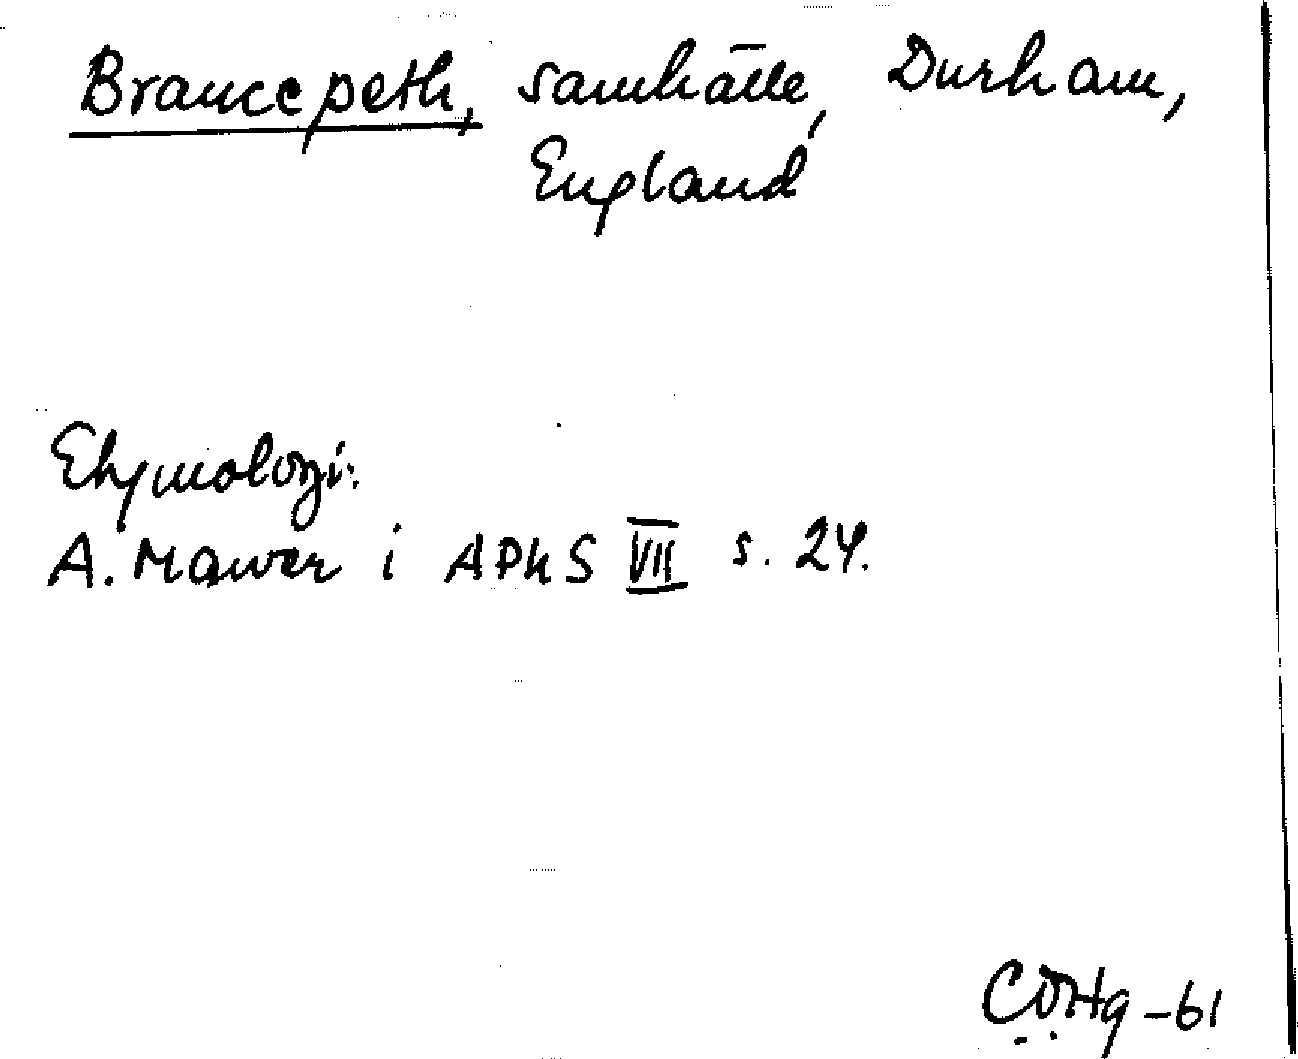 Brancepeth, samhälle, Durham,
England
Etymologi:
A. Mawer i APhS VII s. 24.